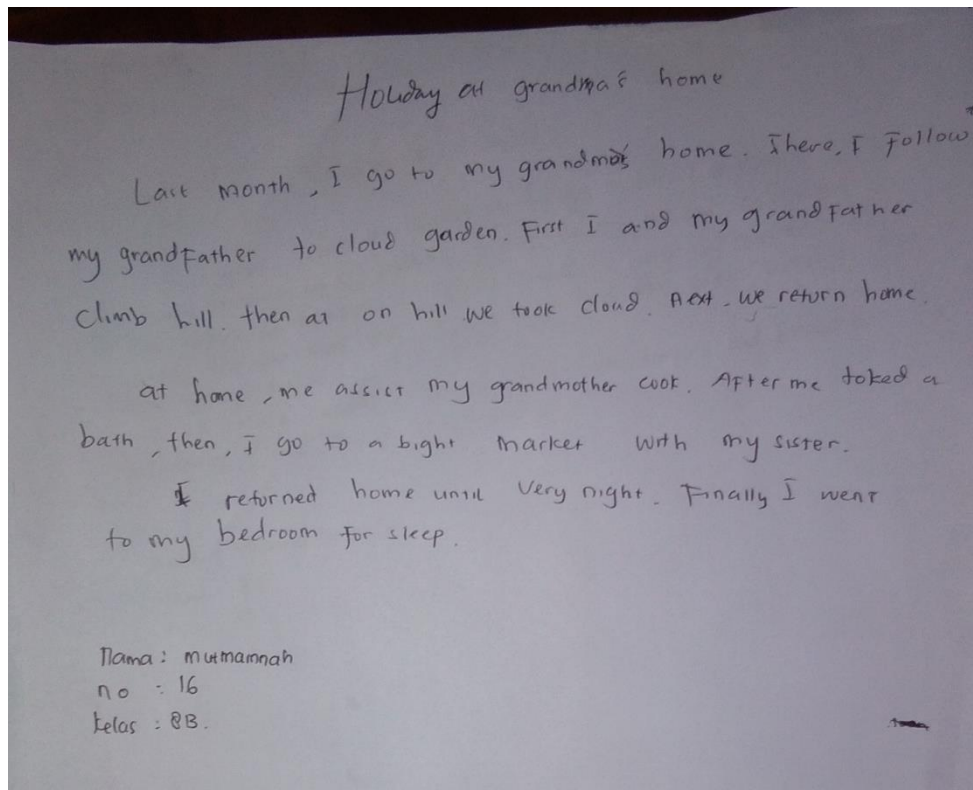 Holiday at grandma's home
Last month, I go to my grandma's home. There, I Follow
my grandFather to cloud garden. First I and my grandFather
Climb hill. then at on hill we took cloud. Next, we return home.
at home, me assist my grandmother cook. AFter me toked a
bath, then, I go to a bight market with my sister.
I returned home until Very night. Finally I went
to my bedroom for sleep.
Nama : mutmainnah
no : 16
kelas : 8B.